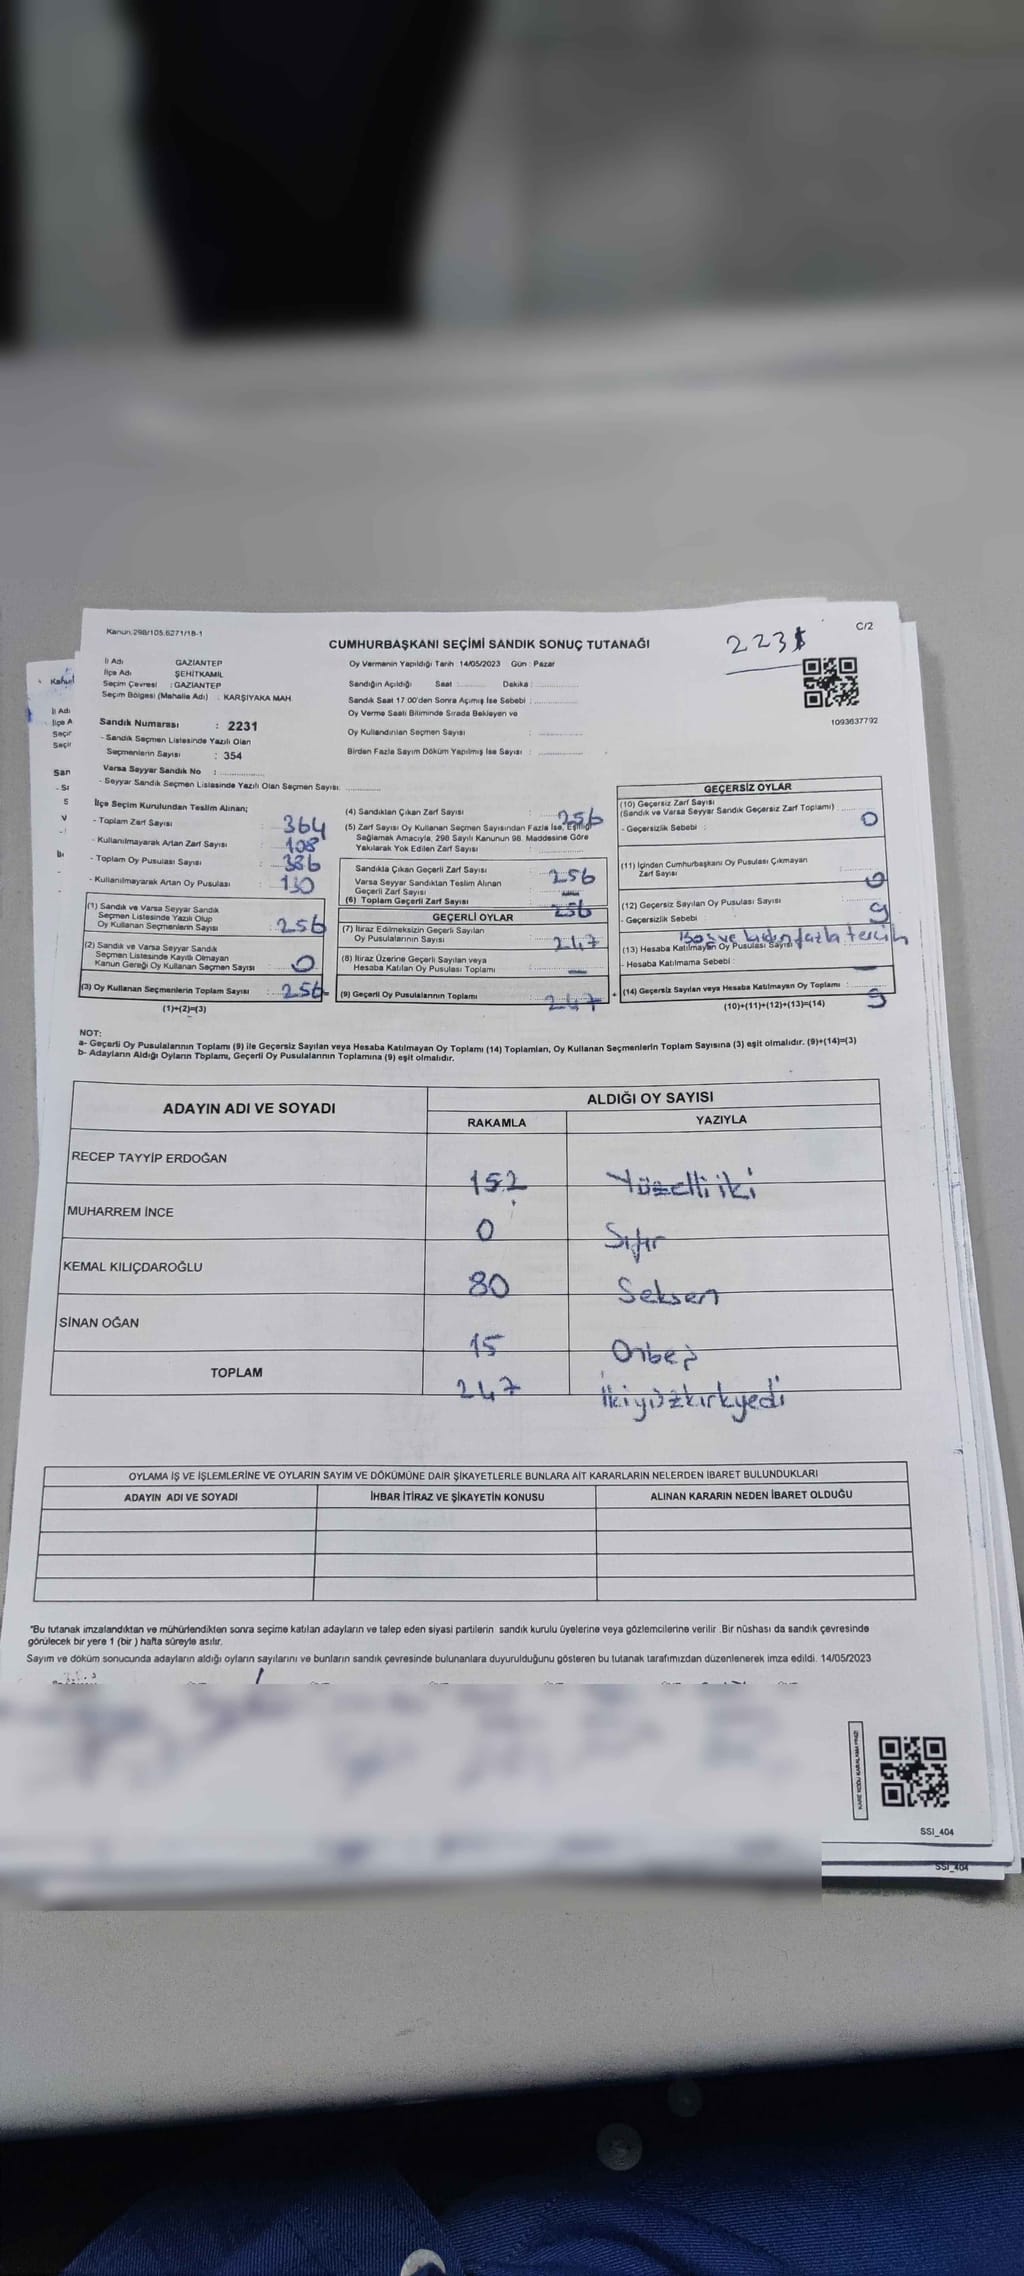 Kanun.298/105.6271/18-1
C/2
CUMHURBAŞKANI SEÇİMİ SANDIK SONUÇ TUTANAĞI
2231
1093637792
İl Adı GAZİANTEP
İlçe Adı ŞEHİTKAMİL
Seçim Çevresi : GAZİANTEP
Seçim Bölgesi (Mahalle Adı) : KARŞIYAKA MAH
Sandık Numarası : 2231
- Sandık Seçmen Listesinde Yazılı Olan
Seçmenlerin Sayısı : 354
Varsa Seyyar Sandık No : ..............
- Seyyar Sandık Seçmen Listesinde Yazılı Olan Seçmen Sayısı: ..............
Oy Vermenin Yapıldığı Tarih :14/05/2023 Gün : Pazar
Sandığın Açıldığı Saat : .......... Dakika : ..............
Sandık Saat 17:00'den Sonra Açılmış İse Sebebi : ..............
Oy Verme Saati Bitiminde Sırada Bekleyen ve
Oy Kullandırılan Seçmen Sayısı : ..............
Birden Fazla Sayım Döküm Yapılmış İse Sayısı : ..............
İlçe Seçim Kurulundan Teslim Alınan;
- Toplam Zarf Sayısı : 364
- Kullanılmayarak Artan Zarf Sayısı : 108
- Toplam Oy Pusulası Sayısı : 386
- Kullanılmayarak Artan Oy Pusulası : 130
(1) Sandık ve Varsa Seyyar Sandık
Seçmen Listesinde Yazılı Olup
Oy Kullanan Seçmenlerin Sayısı : 256
(2) Sandık ve Varsa Seyyar Sandık
Seçmen Listesinde Kayıtlı Olmayan
Kanun Gereği Oy Kullanan Seçmen Sayısı : 0
(3) Oy Kullanan Seçmenlerin Toplam Sayısı : 256
(1)+(2)=(3)
(4) Sandıktan Çıkan Zarf Sayısı : 256
(5) Zarf Sayısı Oy Kullanan Seçmen Sayısından Fazla İse, Eşitliği
Sağlamak Amacıyla; 298 Sayılı Kanunun 98. Maddesine Göre
Yakılarak Yok Edilen Zarf Sayısı : —
Sandıkta Çıkan Geçerli Zarf Sayısı : 256
Varsa Seyyar Sandıktan Teslim Alınan
Geçerli Zarf Sayısı : —
(6) Toplam Geçerli Zarf Sayısı : 256
GEÇERLİ OYLAR
(7) İtiraz Edilmeksizin Geçerli Sayılan
Oy Pusulalarının Sayısı : 247
(8) İtiraz Üzerine Geçerli Sayılan veya
Hesaba Katılan Oy Pusulası Toplamı : —
(9) Geçerli Oy Pusulalarının Toplamı : 247
GEÇERSİZ OYLAR
(10) Geçersiz Zarf Sayısı
(Sandık ve Varsa Seyyar Sandık Geçersiz Zarf Toplamı) : 0
- Geçersizlik Sebebi :
(11) İçinden Cumhurbaşkanı Oy Pusulası Çıkmayan
Zarf Sayısı : 0
(12) Geçersiz Sayılan Oy Pusulası Sayısı : 9
- Geçersizlik Sebebi : Boş ve birden fazla tercih
(13) Hesaba Katılmayan Oy Pusulası Sayısı : —
- Hesaba Katılmama Sebebi :
(14) Geçersiz Sayılan veya Hesaba Katılmayan Oy Toplamı : 9
(10)+(11)+(12)+(13)=(14)
NOT:
a- Geçerli Oy Pusulalarının Toplamı (9) ile Geçersiz Sayılan veya Hesaba Katılmayan Oy Toplamı (14) Toplamları, Oy Kullanan Seçmenlerin Toplam Sayısına (3) eşit olmalıdır. (9)+(14)=(3)
b- Adayların Aldığı Oyların Toplamı, Geçerli Oy Pusulalarının Toplamına (9) eşit olmalıdır.
ADAYIN ADI VE SOYADI ALDIĞI OY SAYISI
RAKAMLA YAZIYLA
RECEP TAYYİP ERDOĞAN 152 Yüzelliiki
MUHARREM İNCE 0 Sıfır
KEMAL KILIÇDAROĞLU 80 Seksen
SİNAN OĞAN 15 Onbeş
TOPLAM 247 İkiyüzkırkyedi
OYLAMA İŞ VE İŞLEMLERİNE VE OYLARIN SAYIM VE DÖKÜMÜNE DAİR ŞİKAYETLERLE BUNLARA AİT KARARLARIN NELERDEN İBARET BULUNDUKLARI
ADAYIN ADI VE SOYADI İHBAR İTİRAZ VE ŞİKAYETİN KONUSU ALINAN KARARIN NEDEN İBARET OLDUĞU
"Bu tutanak imzalandıktan ve mühürlendikten sonra seçime katılan adayların ve talep eden siyasi partilerin sandık kurulu üyelerine veya gözlemcilerine verilir .Bir nüshası da sandık çevresinde
görülecek bir yere 1 (bir ) hafta süreyle asılır.
Sayım ve döküm sonucunda adayların aldığı oyların sayılarını ve bunların sandık çevresinde bulunanlara duyurulduğunu gösteren bu tutanak tarafımızdan düzenlenerek imza edildi. 14/05/2023
SSI_404
SSI_404